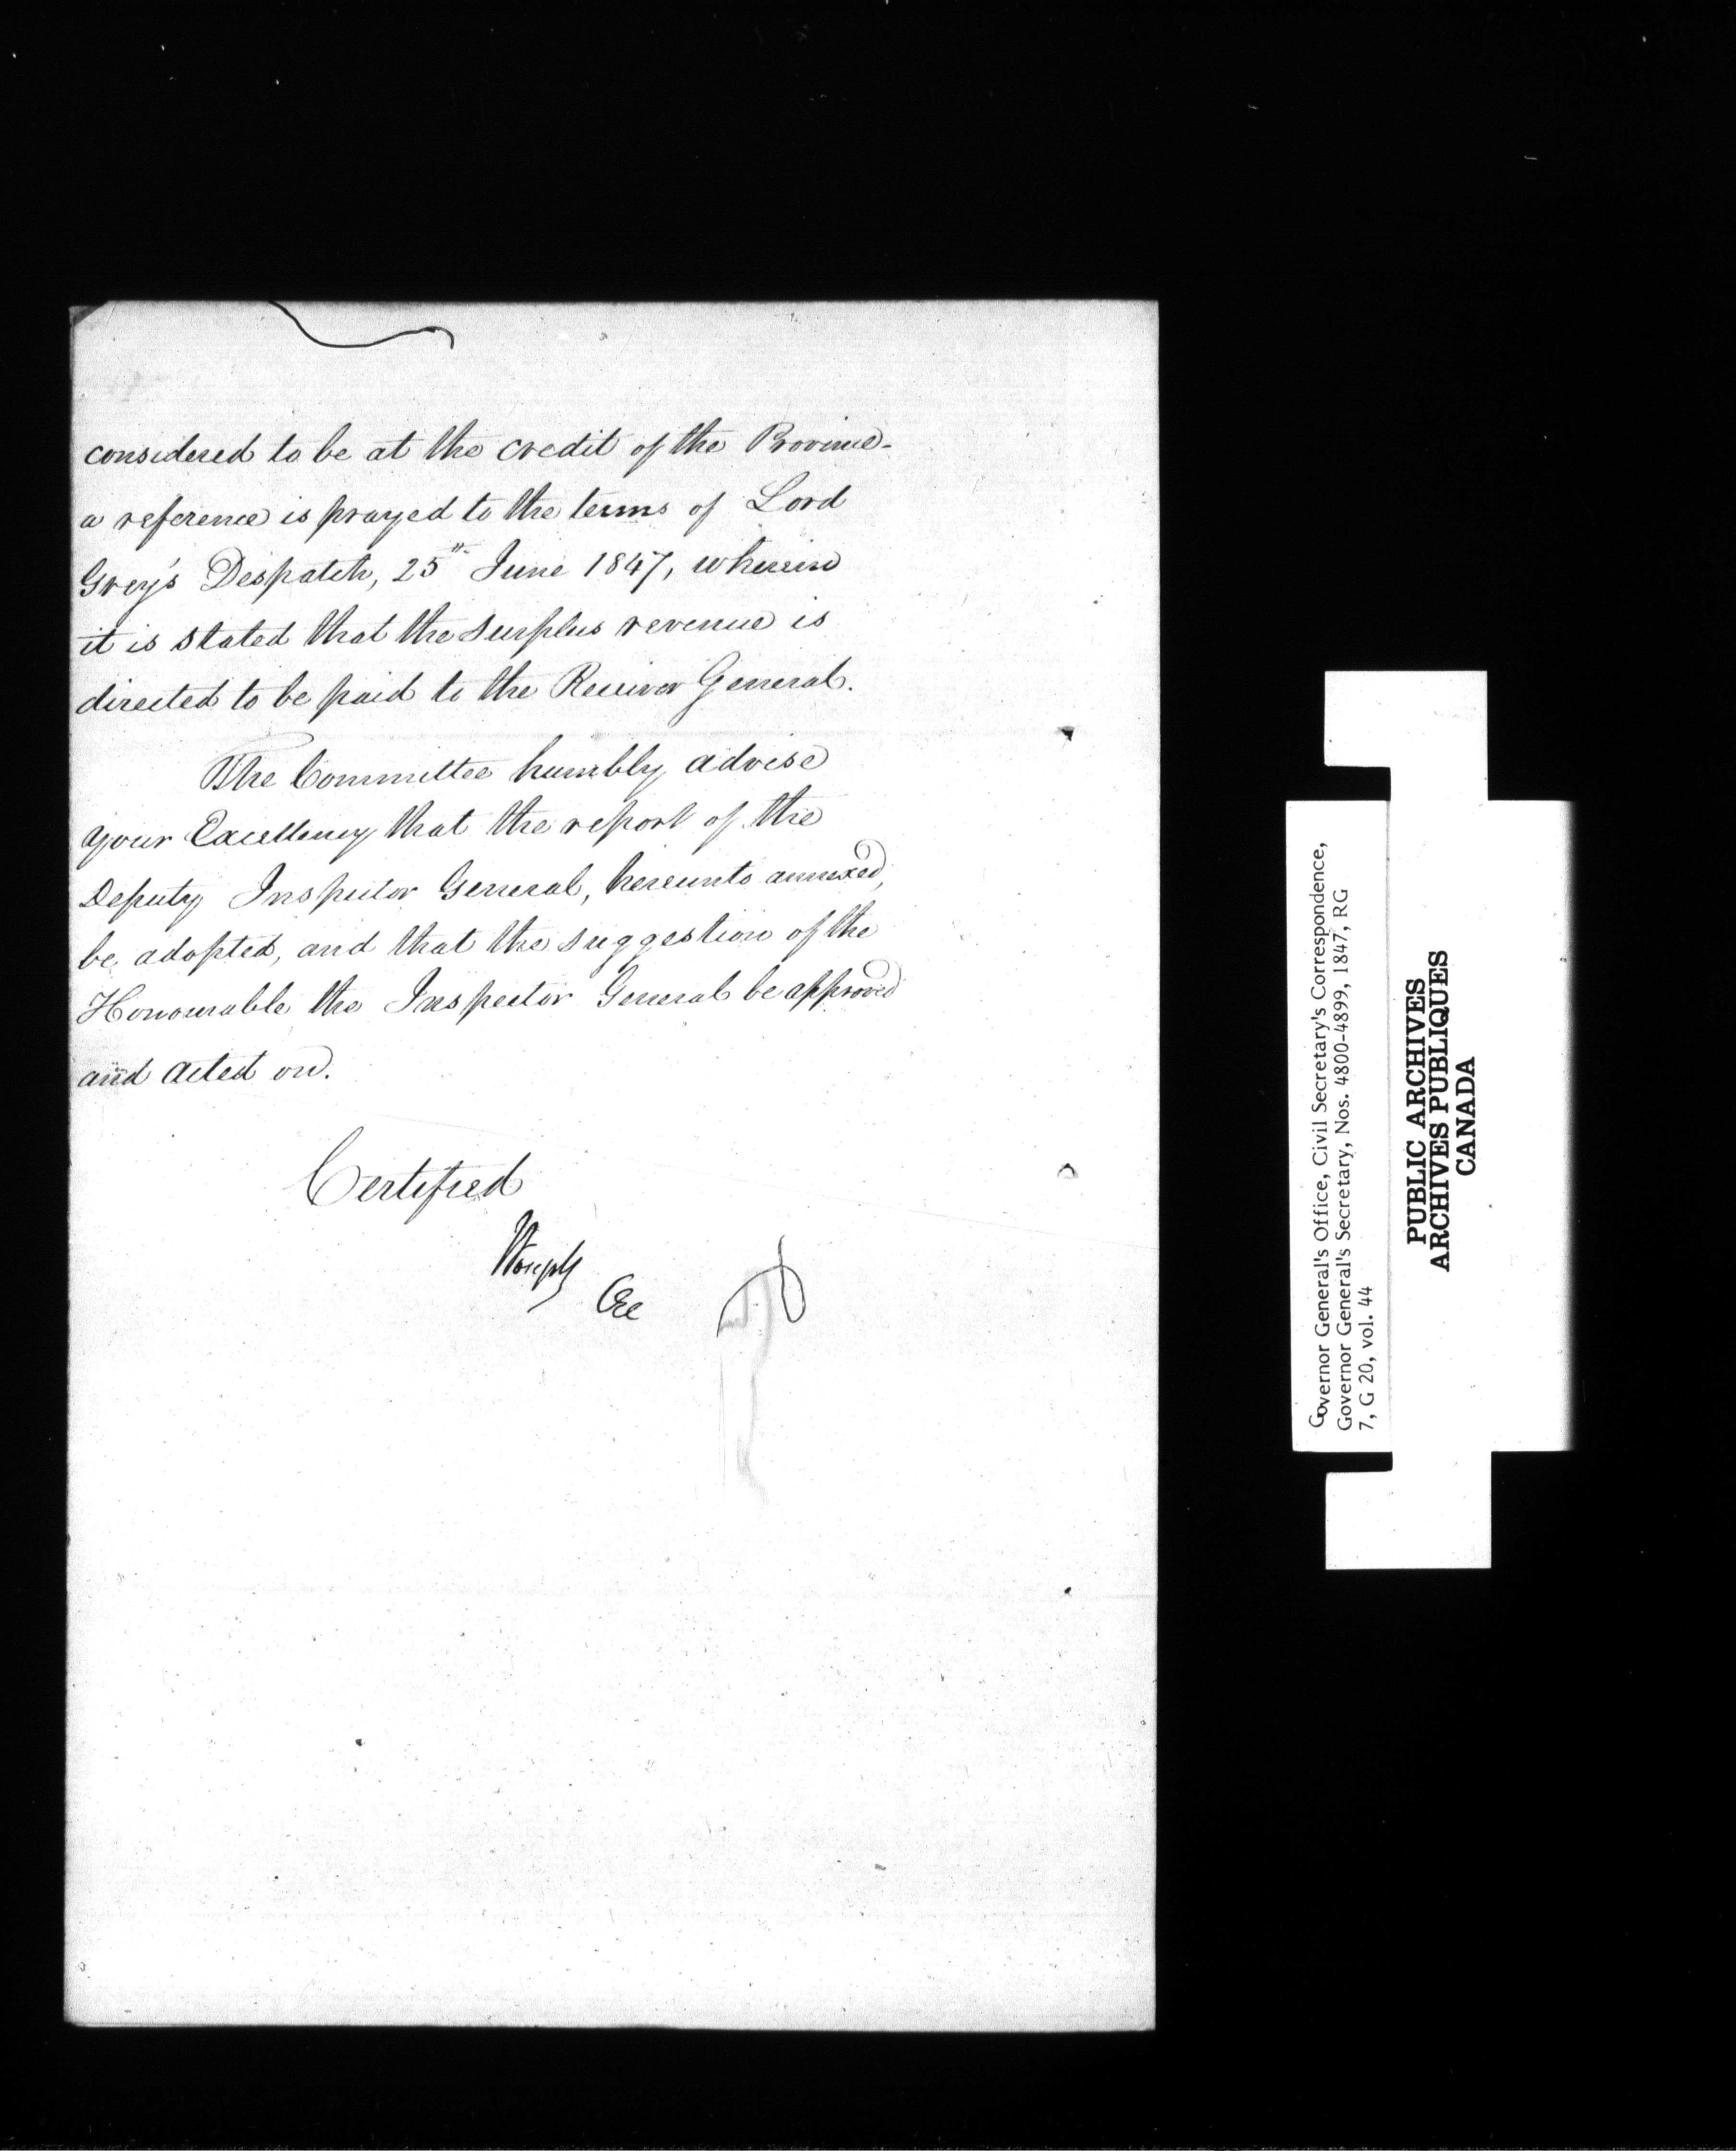 considered to be at the credit of the Province-
a reference is prayed to the terms of Lord
Grey's Despatch, 25th June 1847, wherein
it is stated that the surplus revenue is
directed to be paid to the Receiver General.
The Committee humbly advise
Your Excellency that the report of the
Deputy Inspector General, hereunto annexed,
be adopted, and that the suggestion of the
Honourable the Inspector General be approved
and acted on.
Certified
Governor General's Office, Civil Secretary's Correspondence,
Governor General's Secretary, Nos. 4800-4899, 1847, RG
7, G 20, vol. 44
PUBLIC ARCHIVES
ARCHIVES PUBLIQUES
CANADA